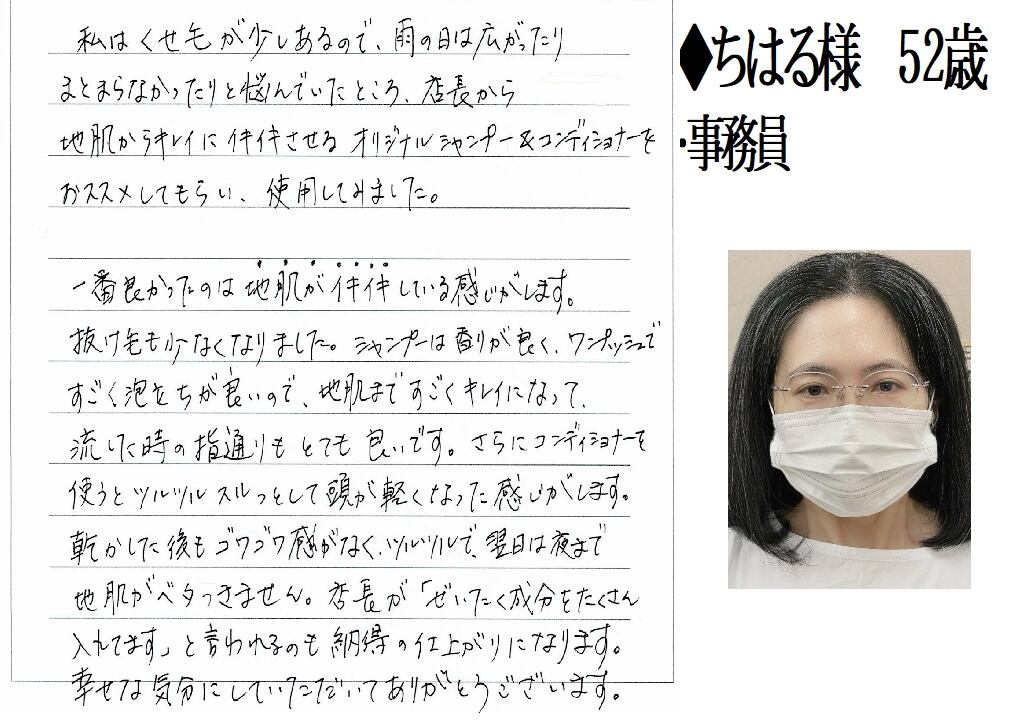 私はくせ毛が少しあるので、雨の日は広がったり
まとまらなかったりと悩んでいたところ、店長から
地肌からキレイにイキイキさせるオリジナルシャンプー&コンディショナーを
おススメしてもらい、使用してみました。
一番良かったのは地肌がイキイキしている感じがします。
抜け毛も少なくなりました。シャンプーは香りが良く、ワンプッシュで
すごく泡立ちが良いので、地肌まですごくキレイになって、
流した時の指通りもとても良いです。さらにコンディショナーを
使うとツルツルスルっとして頭が軽くなった感じがします。
乾かした後もゴワゴワ感がなく、ツルツルで、翌日は夜まで
地肌がベタつきません。店長が「ぜいたく成分をたくさん
入れてます」と言われるのも納得の仕上がりになります。
幸せな気分にしていただいてありがとうございます。
◆ちはる様 52歳
・事務員